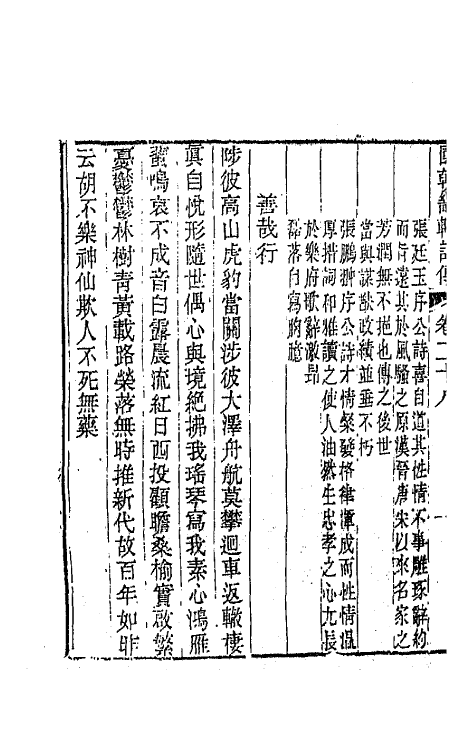 國朝畿輔詩傳 卷二十八
張廷玉序公詩喜自道其性情不事雕琢辭約
而旨遠其於風騷之原漢晉唐宋以來名家之
芳潤無不挹也傳之後世
當與謀猷政績並垂不朽
張鵬翀序公詩才情藻發格律渾成而性情溫
厚措詞和雅讀之使人油然生忠孝之心尤長
於樂府歌辭激昂
磊落自寫胸臆
善哉行
陟彼高山虎豹當關涉彼大澤舟航莫攀迴車返轍棲
眞自悅形隨世偶心與境絕拂我瑤琴寫我素心鴻雁
蜚鳴哀不成音白露晨流紅日西投顧瞻桑榆實啟繁
憂鬱鬱林樹青黃載路榮落無時推新代故百年如昨
云胡不樂神仙欺人不死無藥